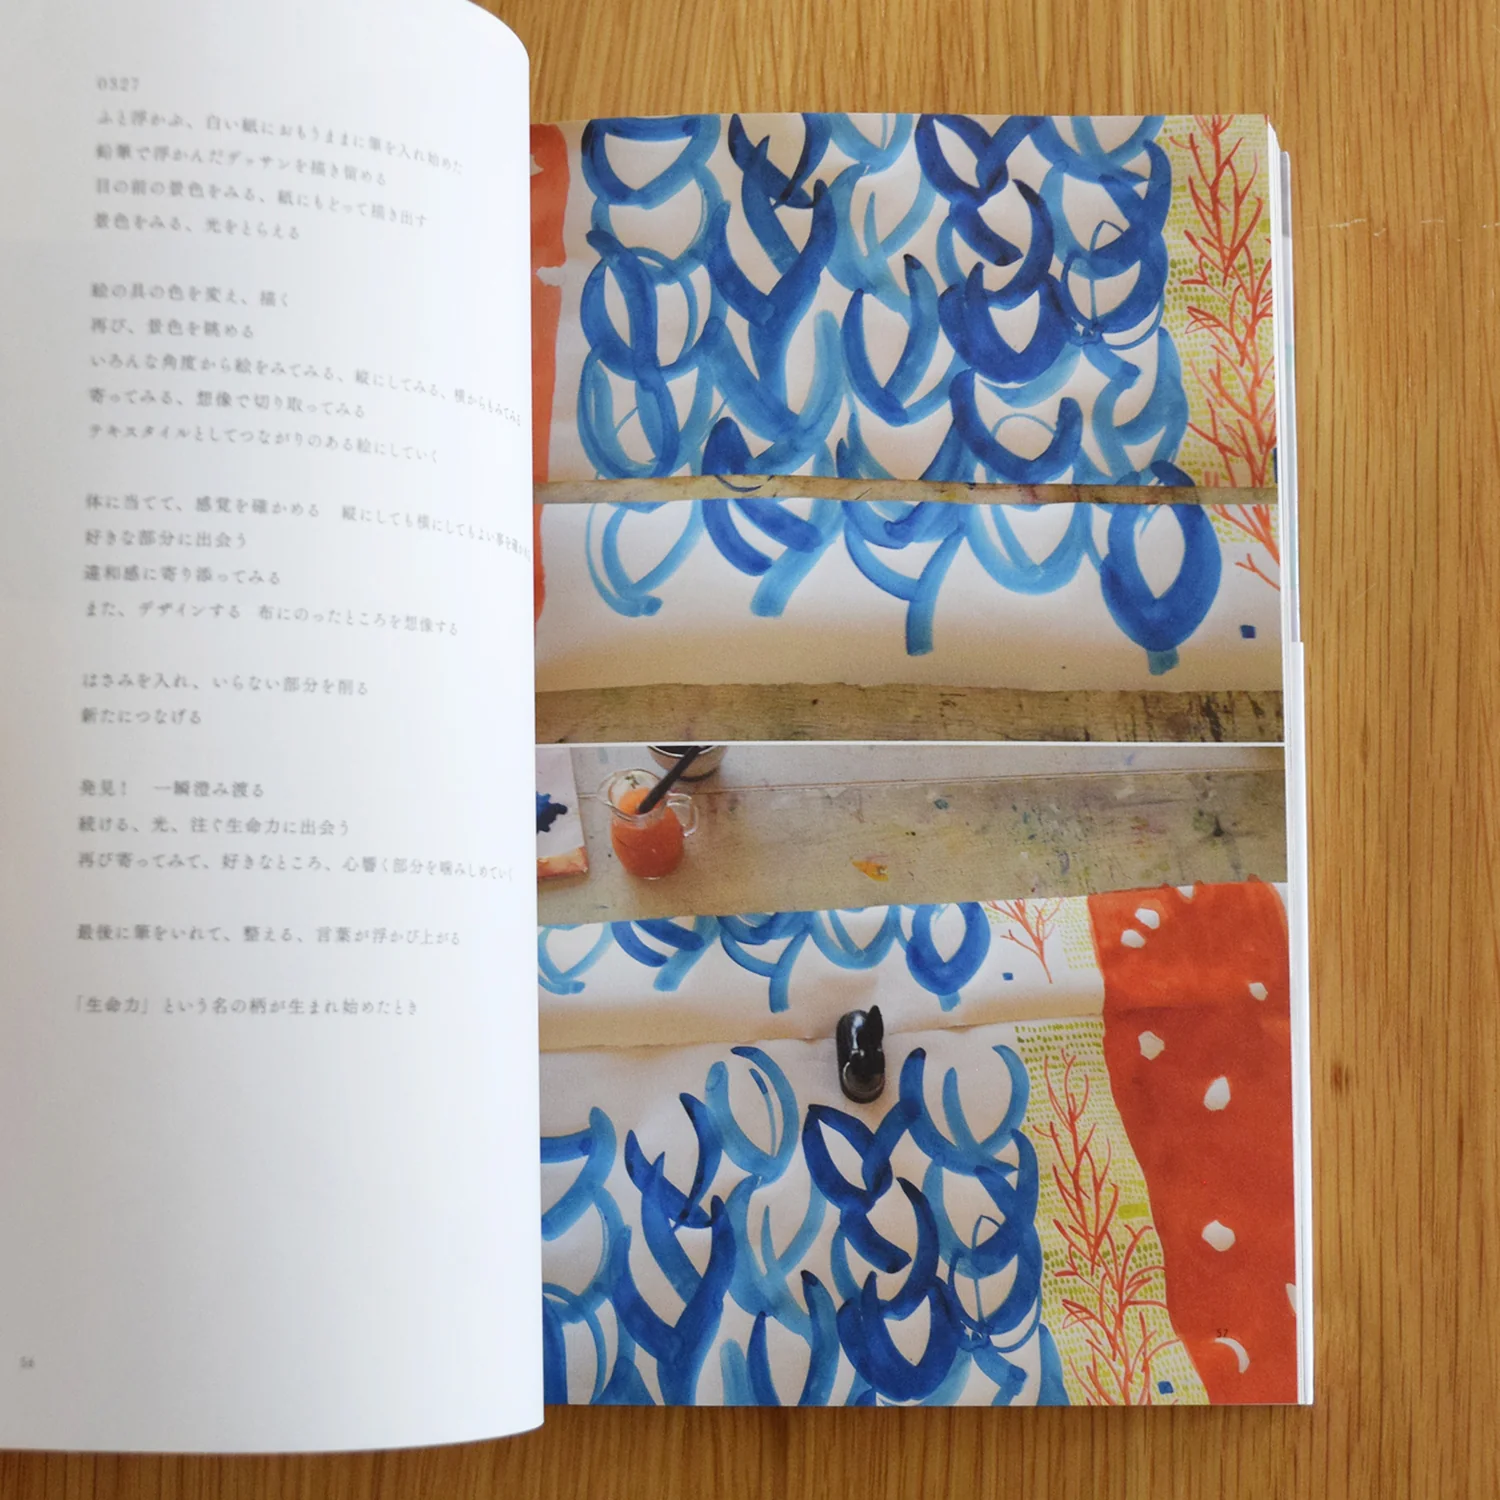 0327
ふと浮かぶ、白い紙におもうままに筆を入れ始めた
鉛筆で浮かんだデッサンを描き留める
目の前の景色をみる、紙にもどって描き出す
景色をみる、光をとらえる
絵の具の色を変え、描く
再び、景色を眺める
いろんな角度から絵をみてみる、縦にしてみる、横からもみてみる
寄ってみる、想像で切り取ってみる
テキスタイルとしてつながりのある絵にしていく
体に当てて、感覚を確かめる　縦にしても横にしてもよい事を
好きな部分に出会う
違和感に寄り添ってみる
また、デザインする　布にのったところを想像する
はさみを入れ、いらない部分を削る
新たにつなげる
発見！　一瞬澄み渡る
続ける、光、注ぐ生命力に出会う
再び寄ってみて、好きなところ、心響く部分を噛みしめていく
最後に筆をいれて、整える、言葉が浮かび上がる
「生命力」という名の柄が生まれ始めたとき
56
57